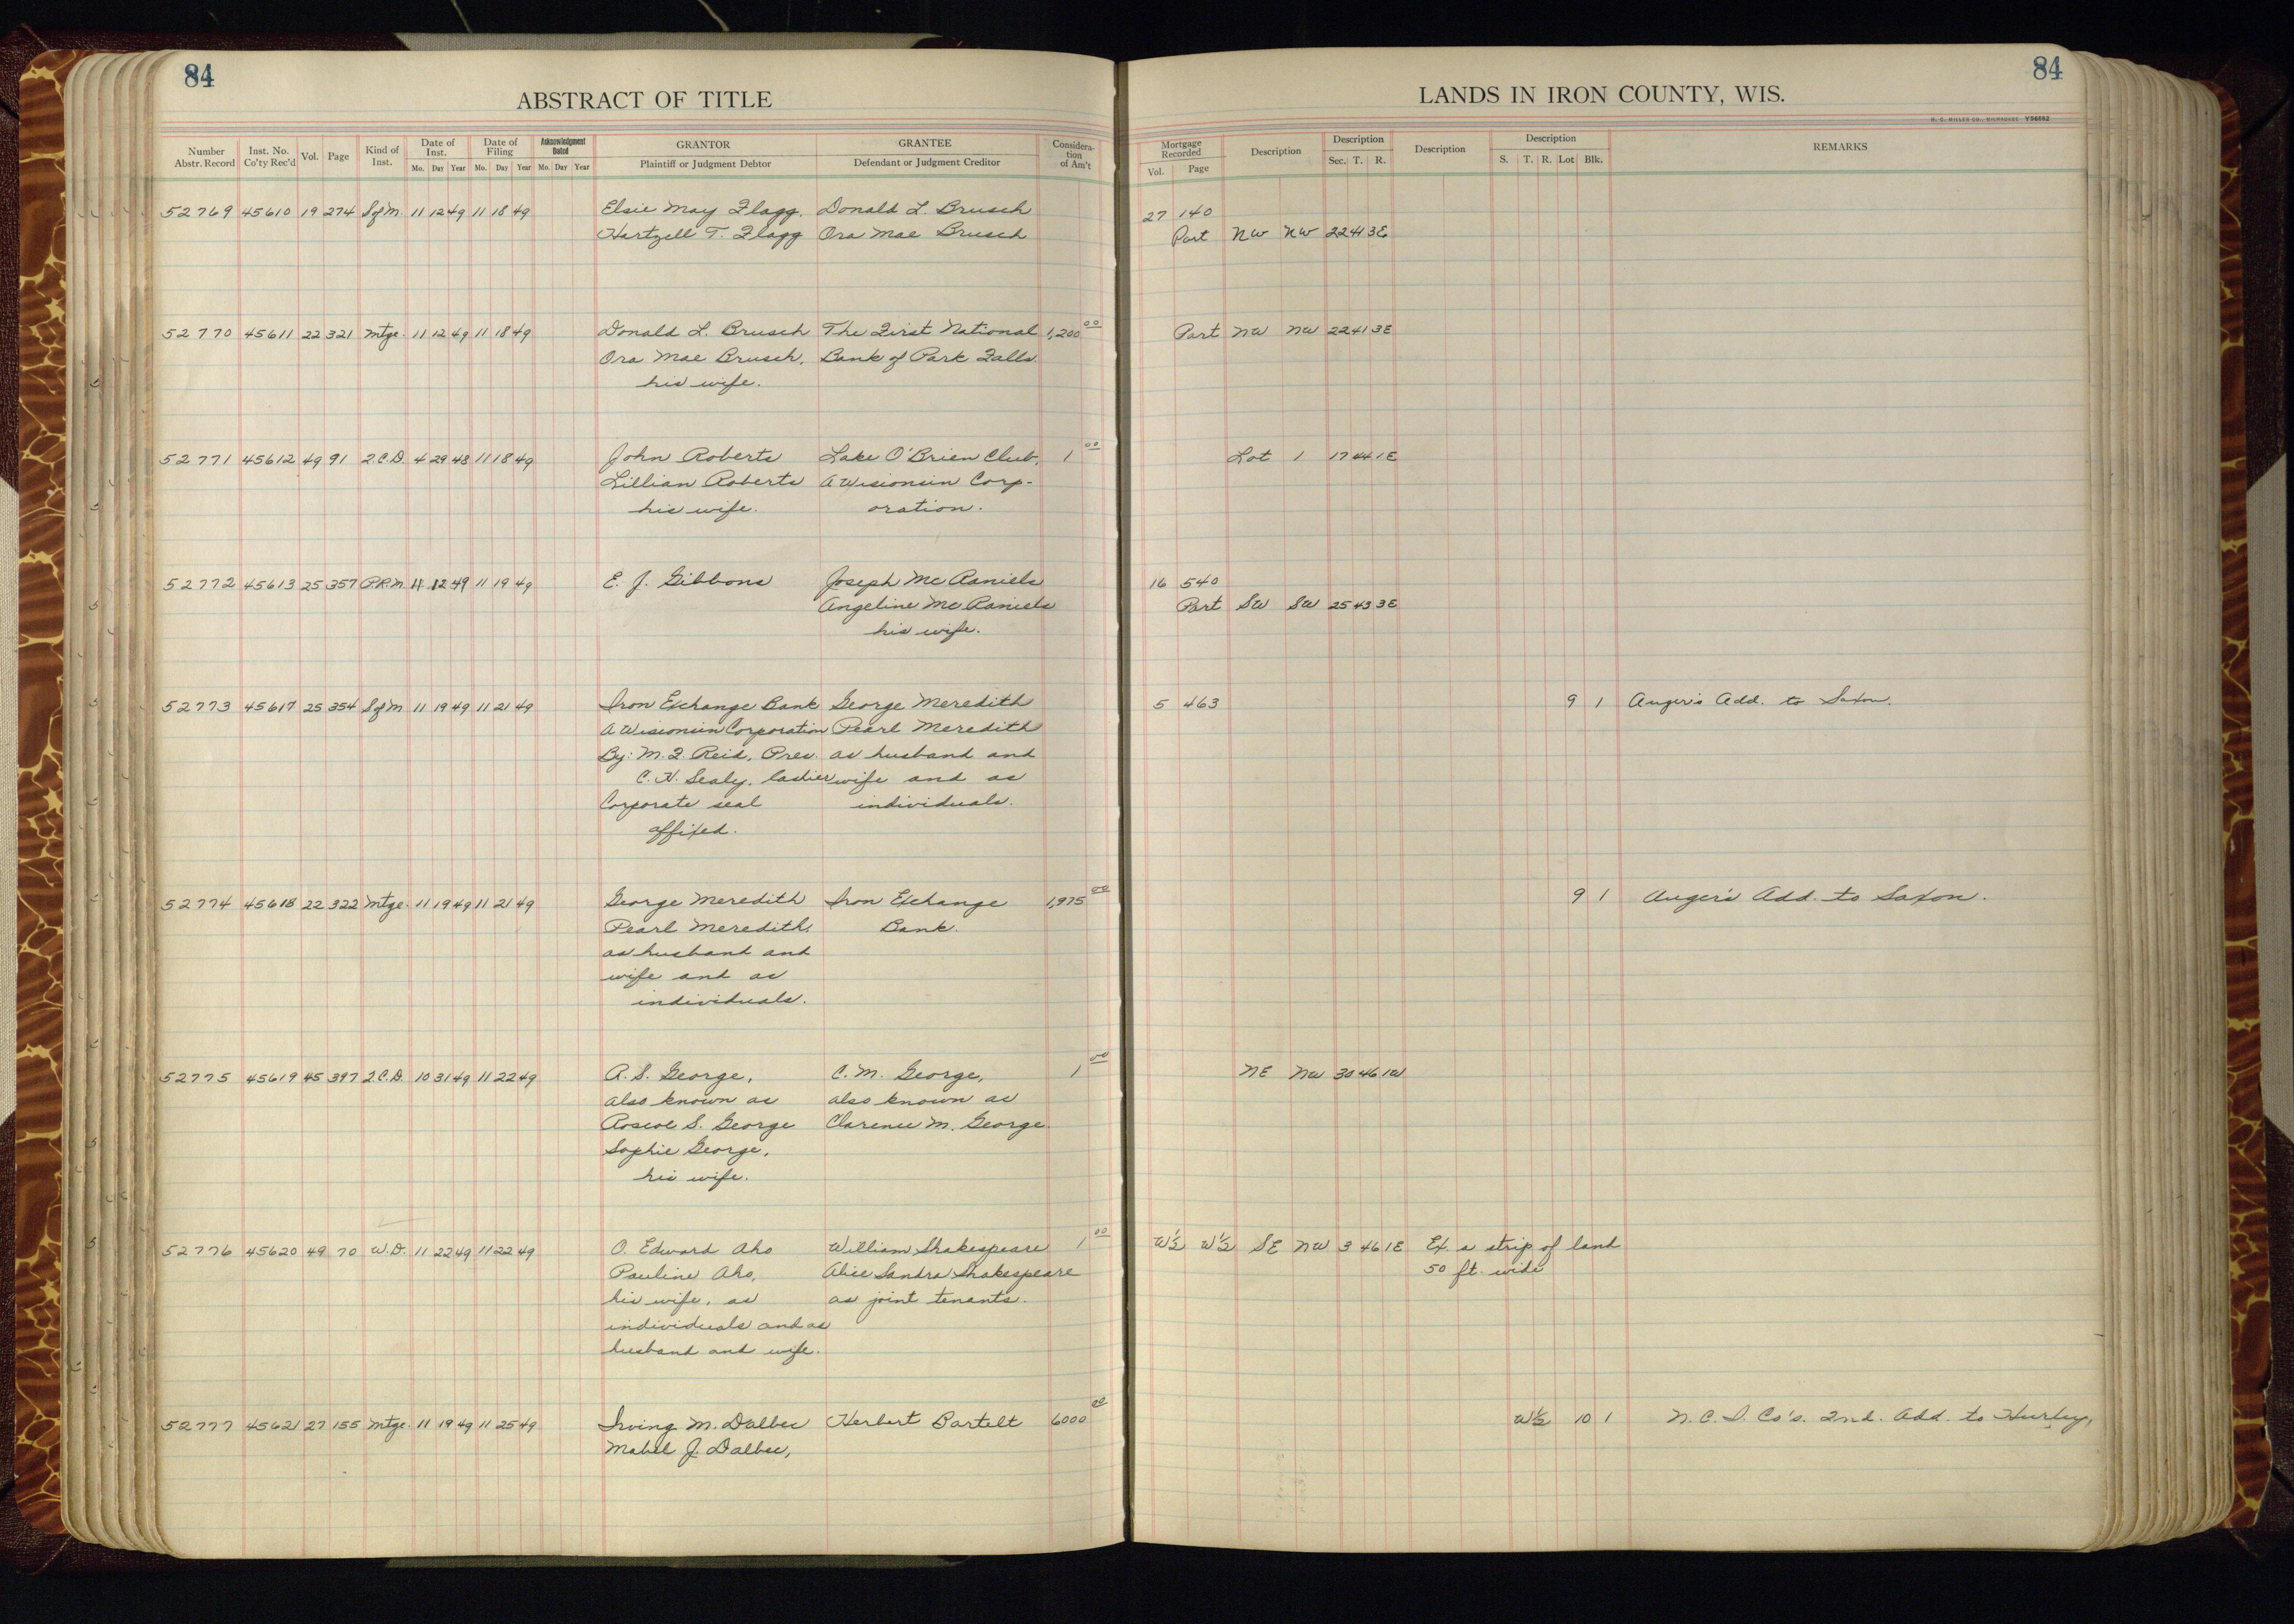 84
84
ABSTRACT OF TITLE
LANDS IN IRON COUNTY, WIS.
H. C. MILLER CO., MILWAUKEE Y56682
Number Abstr. Record Inst. No. Co'ty Rec'd Vol. Page Kind of Inst. Date of Inst. Mo. Day Year Date of Filing Mo. Day Year Acknowledgment Dated Mo. Day Year GRANTOR Plaintiff or Judgment Debtor GRANTEE Defendant or Judgment Creditor Consideration of Am't
Mortgage Recorded Vol. Page Description Description Sec. T. R. Description Description S. T. R. Lot Blk. REMARKS
52769 45610 19 274 S of M. 11 12 49 11 18 49 Elsie May Flagg, Donald L. Brusch 27 140
Hartzell T. Flagg Ora Mae Brusch Part NW NW 22 41 3E
52770 45611 22 321 Mtge. 11 12 49 11 18 49 Donald L. Brusch The First National 1,200 00 Part NW NW 22 41 3E
Ora Mae Brusch, Bank of Park Falls
his wife.
52771 45612 49 91 2.C.D. 4 29 48 11 18 49 John Roberts Lake O'Brien Club, 1 00 Lot 1 17 44 1E
Lillian Roberts A Wisconsin Corp-
his wife. oration.
52772 45613 25 357 P.R.M. 11 12 49 11 19 49 E. J. Gibbons Joseph Mc Daniels 16 540
Angeline Mc Daniels Part SW SW 25 43 3E
his wife.
52773 45617 25 354 S of M 11 19 49 11 21 49 Iron Exchange Bank George Meredith 5 463 9 1 Auger's Add. to Saxon.
A Wisconsin Corporation Pearl Meredith
By: M. F. Reid, Pres. as husband and
C. H. Sealy, Cashier wife and as
Corporate seal individuals.
affixed.
52774 45618 22 322 Mtge. 11 19 49 11 21 49 George Meredith Iron Exchange 1,975 00 9 1 Auger's Add. to Saxon.
Pearl Meredith, Bank.
as husband and
wife and as
individuals.
52775 45619 45 397 2.C.D. 10 31 49 11 22 49 R. S. George, C. M. George, 1 00 NE NW 30 46 1W
also known as also known as
Roscoe S. George Clarence M. George.
Sophie George,
his wife.
52776 45620 49 70 W.D. 11 22 49 11 22 49 O. Edward Aho William Shakespeare 1 00 W½ W½ SE NW 3 46 1E Ex. a strip of land
Pauline Aho, Alice Sandra Shakespeare 50 ft. wide
his wife, as as joint tenants.
individuals and as
husband and wife.
52777 45621 27 155 Mtge. 11 19 49 11 25 49 Irving M. Dalbec Herbert Bartelt 6000 00 W½ 10 1 N. C. I. Co's. 2nd. Add. to Hurley,
Mabel J. Dalbec,